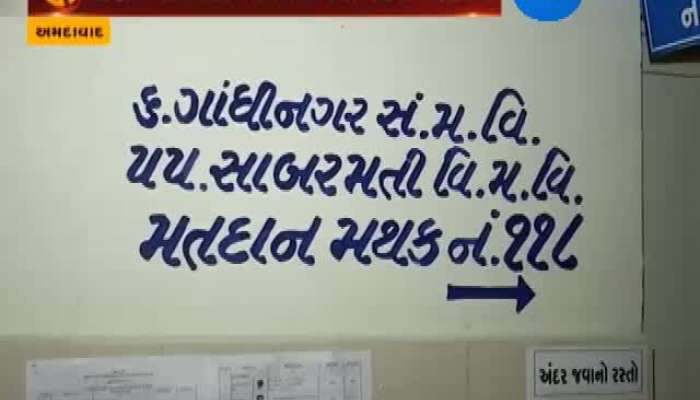 અમદાવાદ
૬.ગાંધીનગર સં.મ.વિ.
૫૫.સાબરમતી વિ.મ.વિ.
મતદાન મથક નં.૧૧૮
અંદર જવાનો રસ્તો